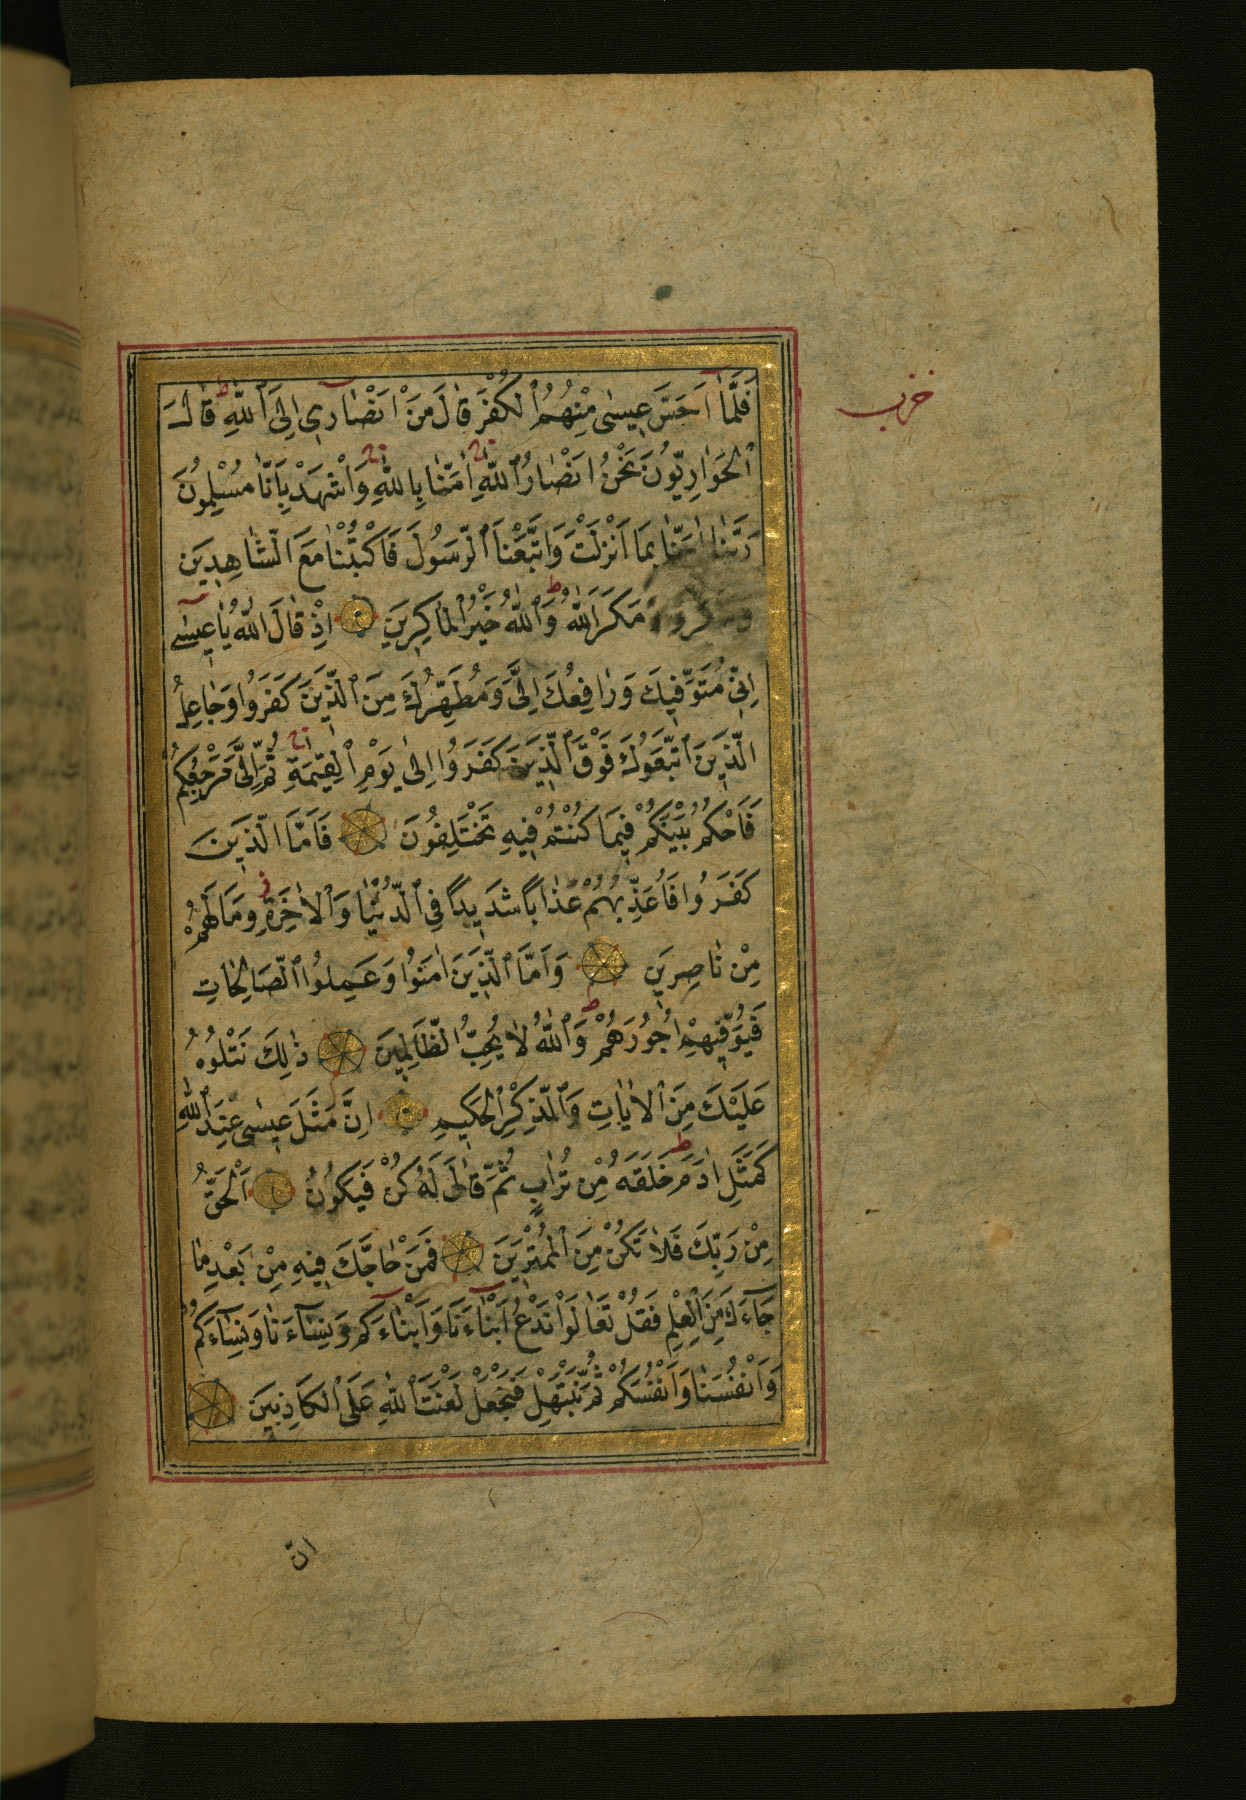 فَلَمَّا اَحَسَّ عِيسٰى مِنْهُمُ الْكُفْرَ قَالَ مَنْ اَنْصَارِي اِلَى اللّٰهِ قَالَ
حزب
الْحَوَارِيُّونَ نَحْنُ اَنْصَارُ اللّٰهِ اٰمَنَّا بِاللّٰهِ وَاشْهَدْ بِاَنَّا مُسْلِمُونَ
رَبَّنَا اٰمَنَّا بِمَا اَنْزَلْتَ وَاتَّبَعْنَا الرَّسُولَ فَاكْتُبْنَا مَعَ الشَّاهِدِينَ
وَمَكَرُوا وَمَكَرَ اللّٰهُ وَاللّٰهُ خَيْرُ الْمَاكِرِينَ اِذْ قَالَ اللّٰهُ يَا عِيسٰى
اِنِّي مُتَوَفِّيكَ وَرَافِعُكَ اِلَيَّ وَمُطَهِّرُكَ مِنَ الَّذِينَ كَفَرُوا وَجَاعِلُ
الَّذِينَ اتَّبَعُوكَ فَوْقَ الَّذِينَ كَفَرُوا اِلٰى يَوْمِ الْقِيٰمَةِ ثُمَّ اِلَيَّ مَرْجِعُكُمْ
فَاَحْكُمُ بَيْنَكُمْ فِيمَا كُنْتُمْ فِيهِ تَخْتَلِفُونَ فَاَمَّا الَّذِينَ
كَفَرُوا فَاُعَذِّبُهُمْ عَذَابًا شَدِيدًا فِي الدُّنْيَا وَالْاٰخِرَةِ وَمَا لَهُمْ
مِنْ نَاصِرِينَ وَاَمَّا الَّذِينَ اٰمَنُوا وَعَمِلُوا الصَّالِحَاتِ
فَيُوَفِّيهِمْ اُجُورَهُمْ وَاللّٰهُ لَا يُحِبُّ الظَّالِمِينَ ذٰلِكَ نَتْلُوهُ
عَلَيْكَ مِنَ الْاٰيَاتِ وَالذِّكْرِ الْحَكِيمِ اِنَّ مَثَلَ عِيسٰى عِنْدَ اللّٰهِ
كَمَثَلِ اٰدَمَ خَلَقَهُ مِنْ تُرَابٍ ثُمَّ قَالَ لَهُ كُنْ فَيَكُونُ اَلْحَقُّ
مِنْ رَبِّكَ فَلَا تَكُنْ مِنَ الْمُمْتَرِينَ فَمَنْ حَاجَّكَ فِيهِ مِنْ بَعْدِ مَا
جَاءَكَ مِنَ الْعِلْمِ فَقُلْ تَعَالَوْا نَدْعُ اَبْنَاءَنَا وَاَبْنَاءَكُمْ وَنِسَاءَنَا وَنِسَاءَكُمْ
وَاَنْفُسَنَا وَاَنْفُسَكُمْ ثُمَّ نَبْتَهِلْ فَنَجْعَلْ لَعْنَتَ اللّٰهِ عَلَى الْكَاذِبِينَ
انّ